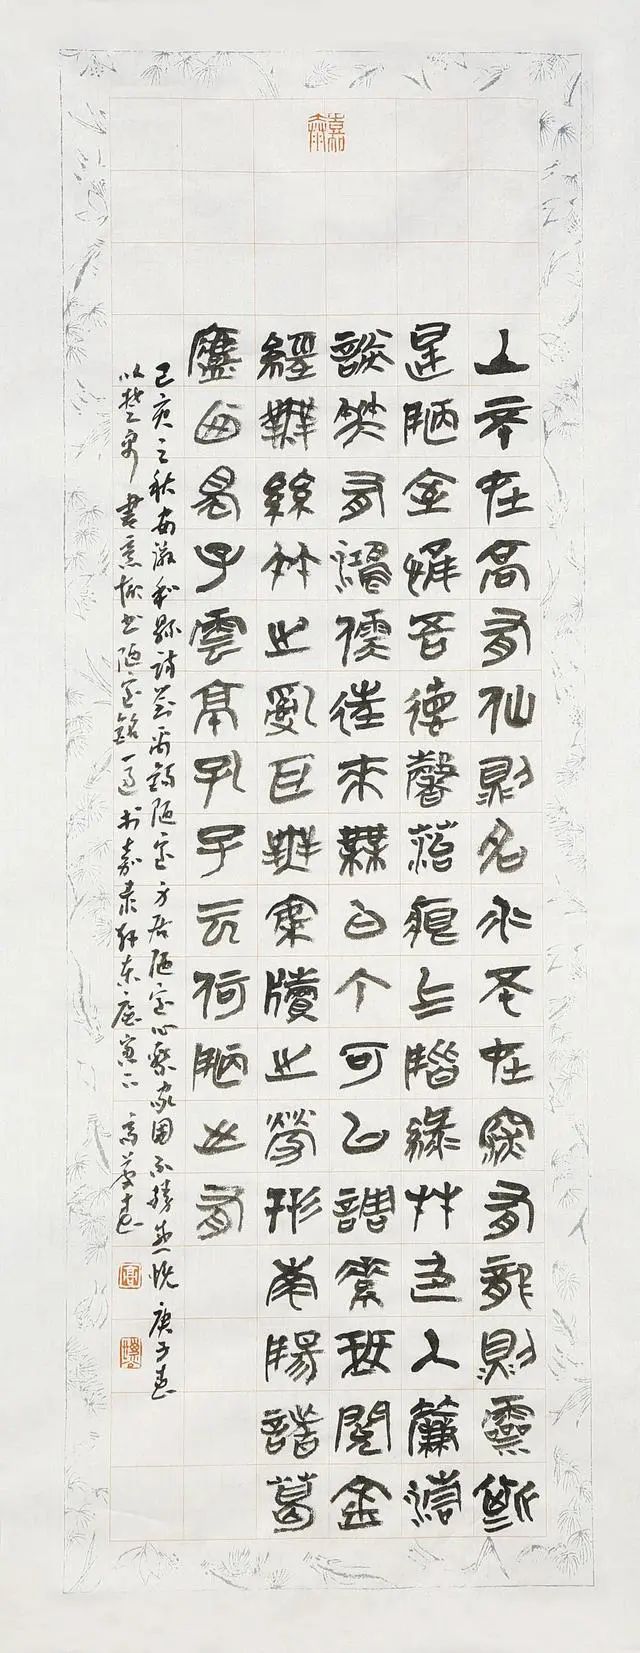 山不在高有仙則名水不在深有龍則靈斯
是陋室惟吾德馨苔痕上階綠艸色入簾青
談笑有鴻儒往來無白丁可以調素琴閱金
經無絲竹之亂耳無案牘之勞形南陽諸葛
廬西蜀子雲亭孔子云何陋之有
己亥之秋安徽和縣訪劉禹錫陋室方居陋室心繫家國不勝感慨庚子春
以楚帛書意作書陋室銘一過於嘉軒東高慶春
高